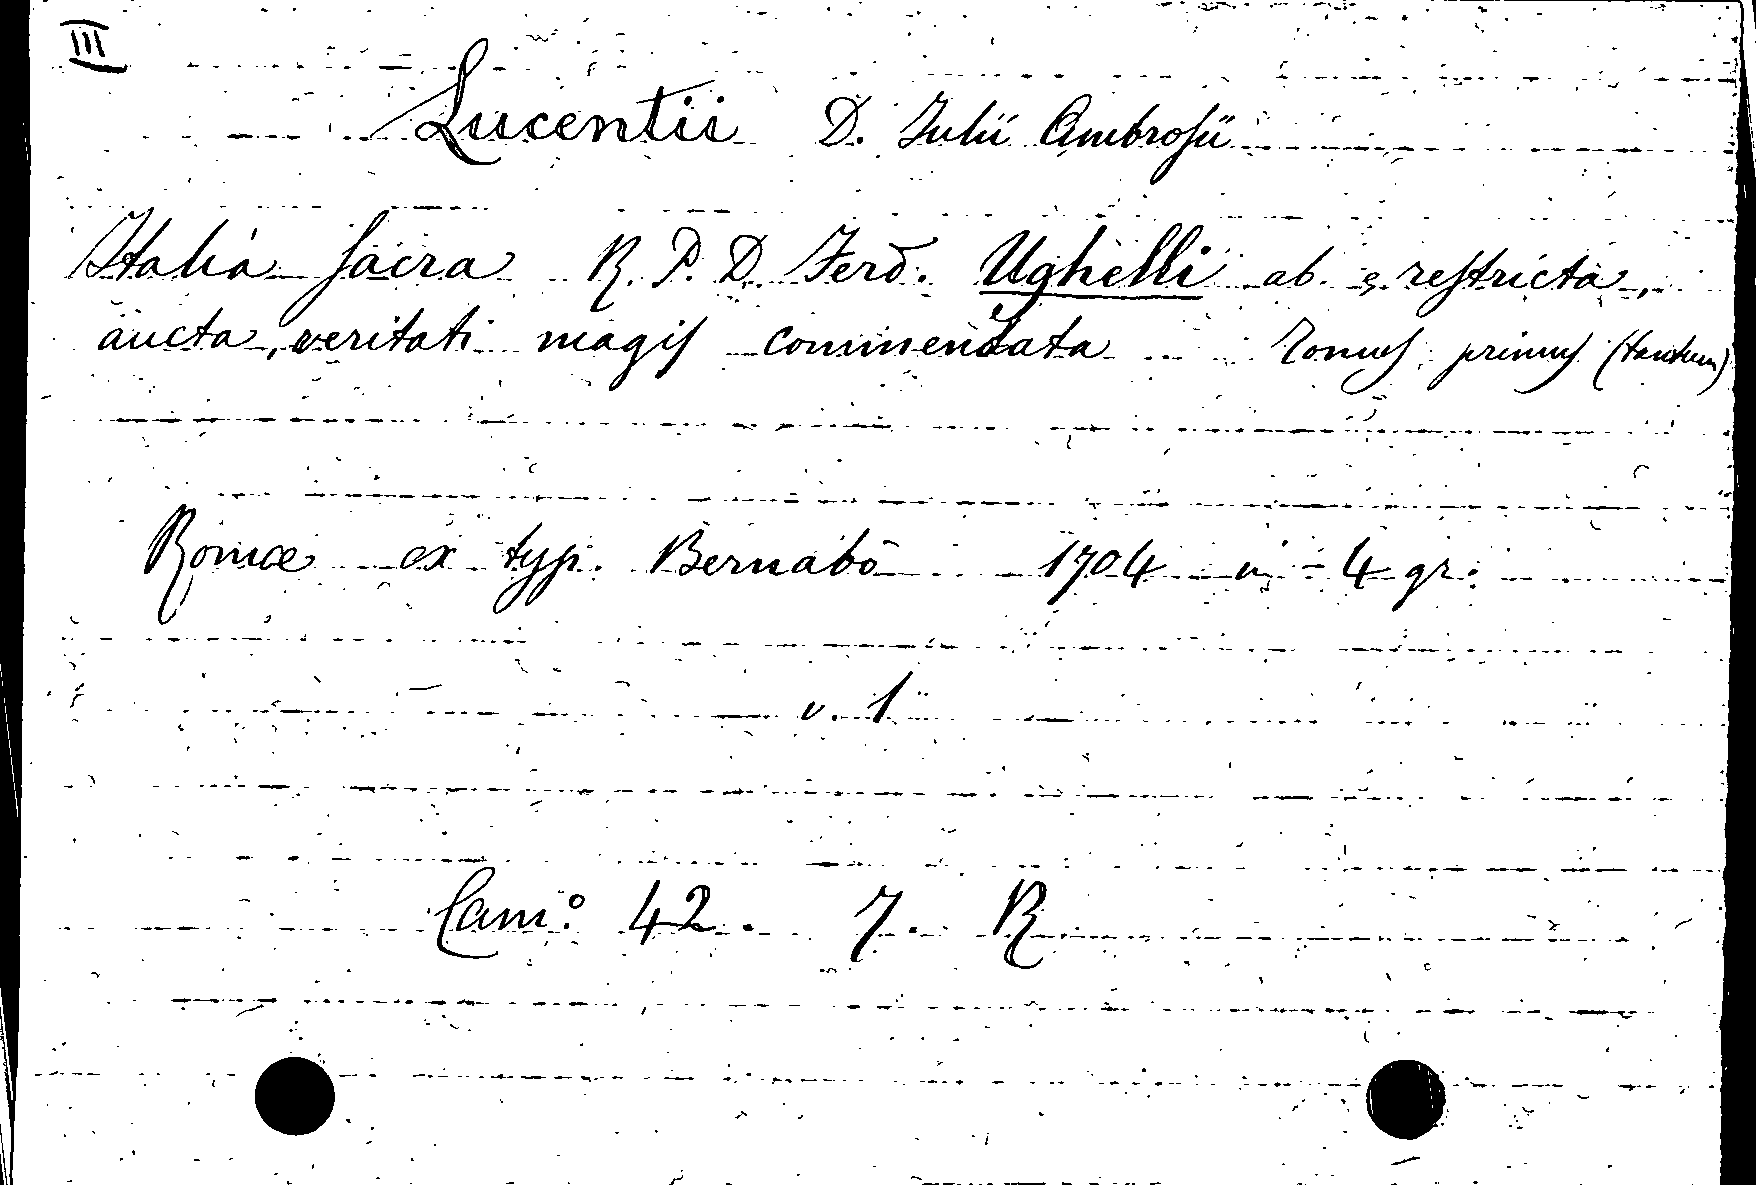 III
Lucentii D. Julii Ambrosii
Italia sacra R. P. D. Ferd. Ughelli ab. restricta,
aucta, veritati magis commendata Tomus primus (tantum)
Romæ ex typ. Bernabò 1704 in-4 gr.
v. 1
Cam: 42. 7. R